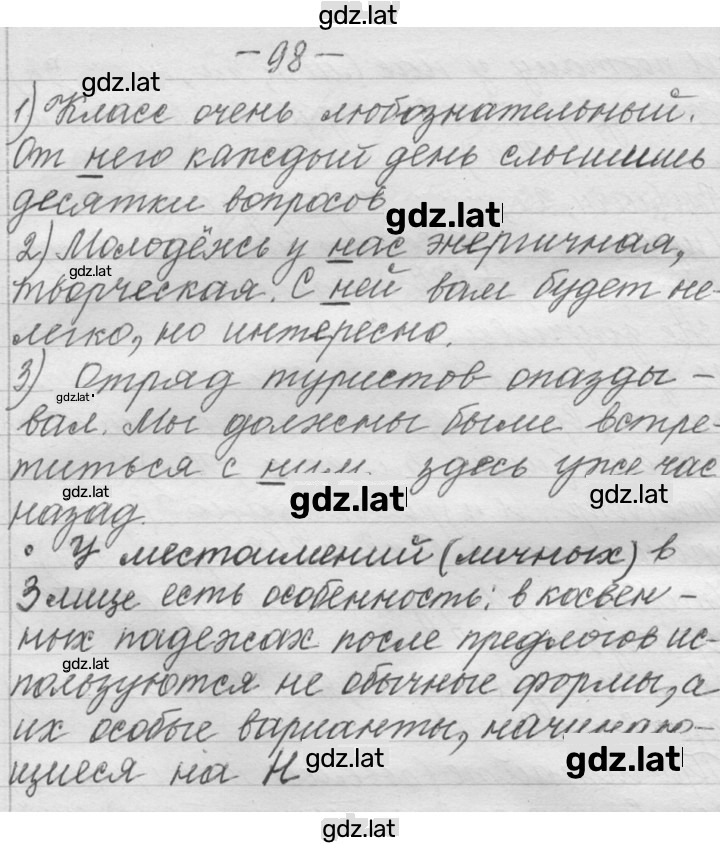 gdz.lat
- 98 -
gdz.lat
1) Класс очень любознательный.
От него каждый день слышишь
десятки вопросов
gdz.lat
2) Молодёжь у нас энергичная,
gdz.lat
творческая. С ней вам будет не-
легко, но интересно.
3) Отряд туристов опазды-
gdz.lat
вал. Мы должны были встре-
титься с ним здесь уже час
gdz.lat gdz.lat gdz.lat
назад.
• У местоимений (личных) в
3 лице есть особенность: в косвен-
ных падежах после предлогов ис-
gdz.lat
пользуются не обычные формы, а
их особые варианты, начинаю-
щиеся на Н
gdz.lat gdz.lat
gdz.lat